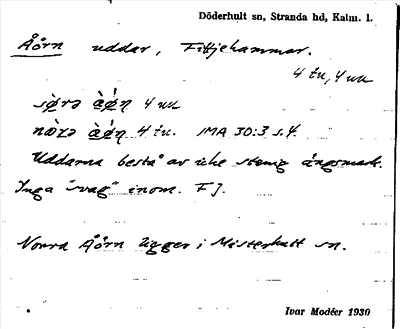 Döderhult sn, Stranda hd, Kalm. l.
Åörn uddar, Fittjehammar.
4 tu, 4 uu
sø̀rə å̀ǿn 4 uu
nò̀rə å̀ǿn 4 tu. IMA 30:3 s.4.
Uddarna bestå av icke stenig ängsmark.
Inga "svag" inom. F J.
Norra Åörn ligger i Misterhult sn.
Ivar Modéer 1930